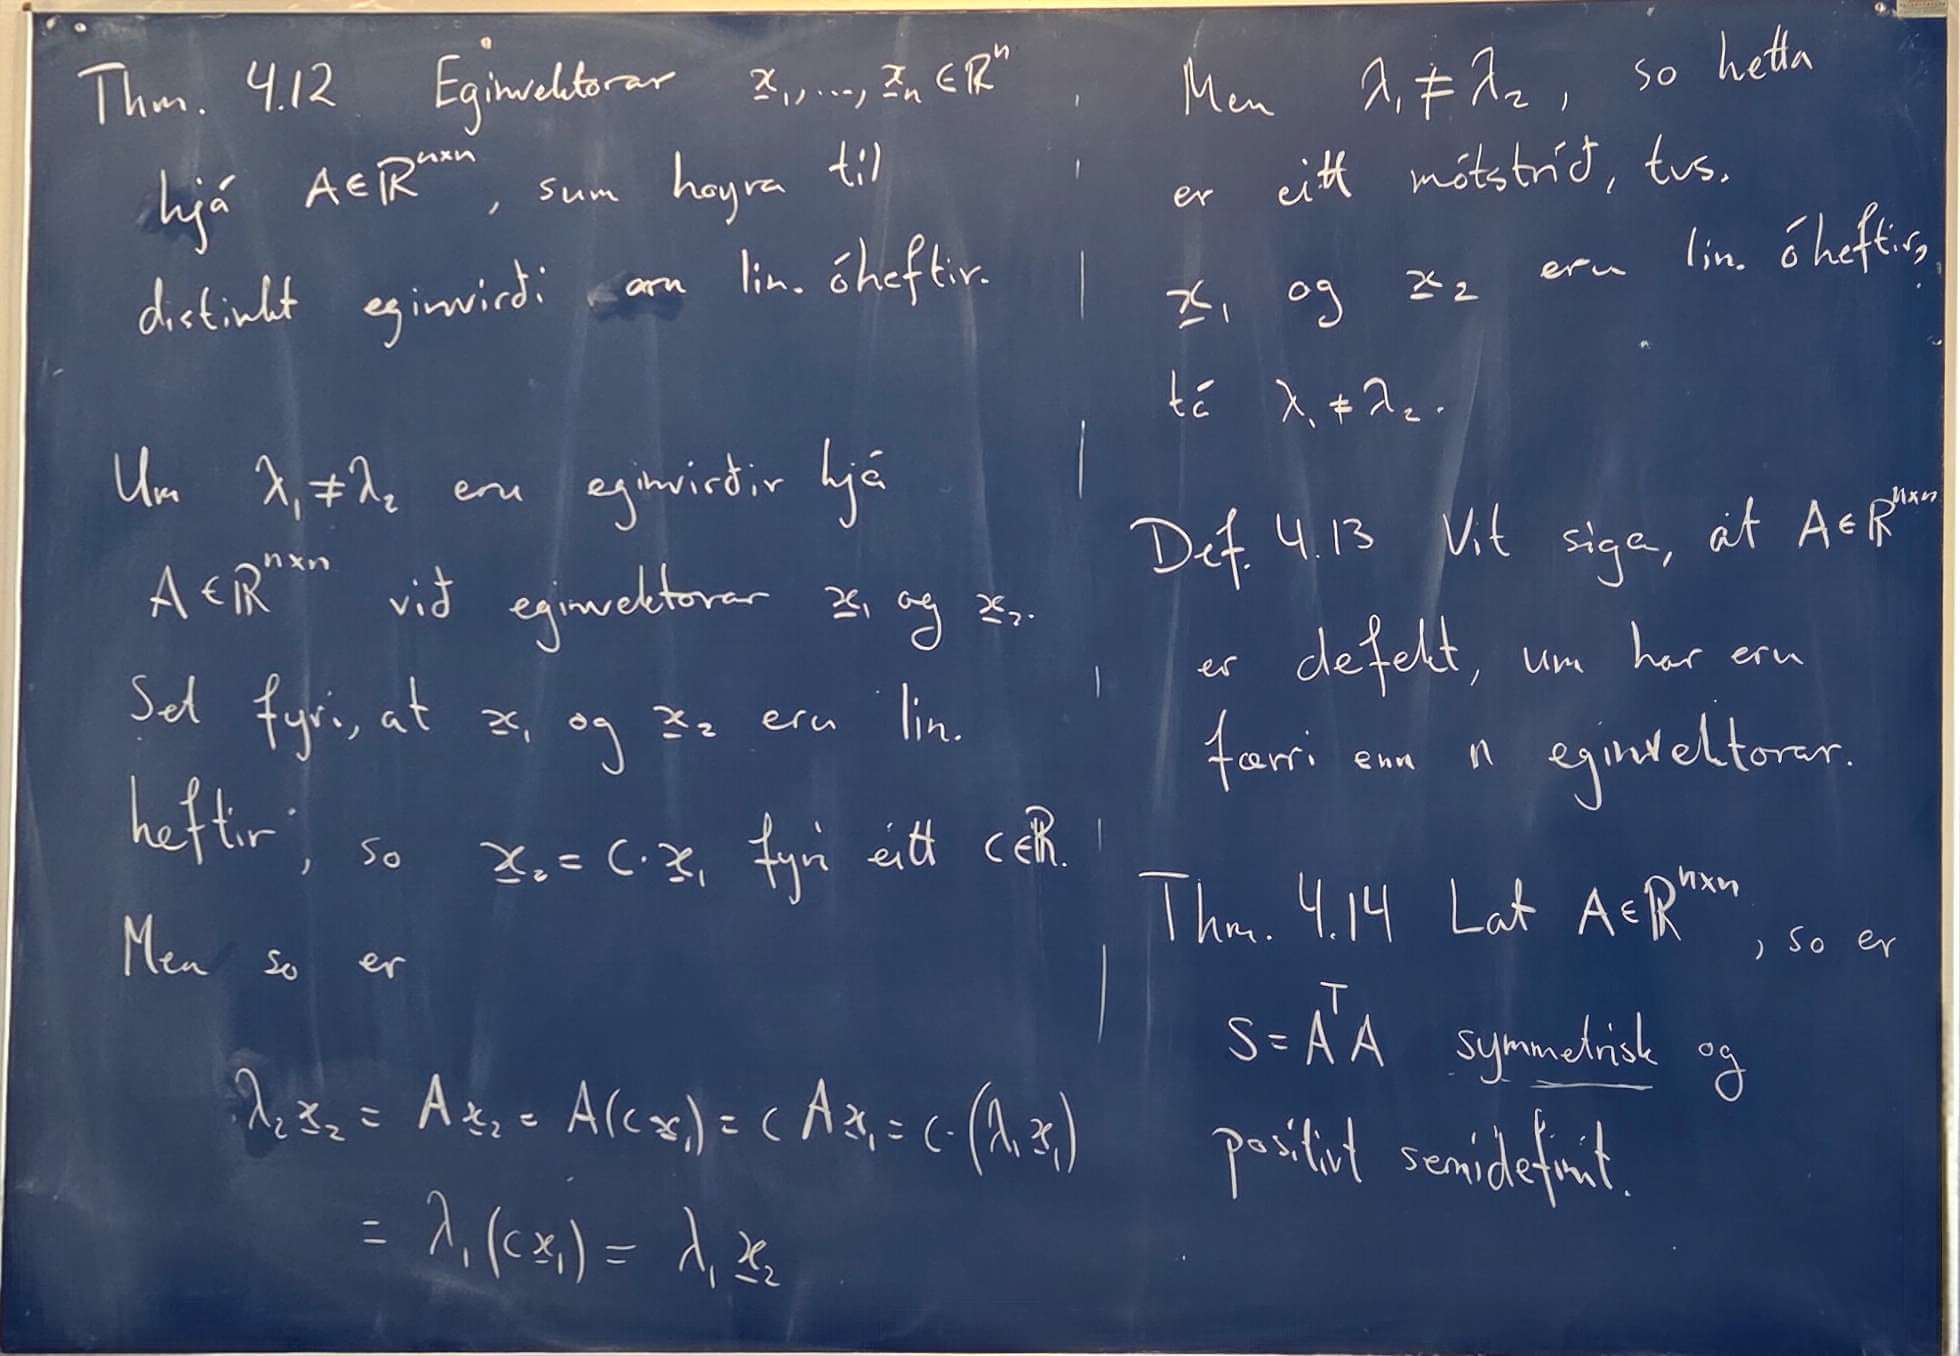 Thm. 4.12 Eginvektorar x̲₁, ..., x̲ₙ ∈ ℝⁿ
hjá A ∈ ℝⁿˣⁿ, sum hoyra til
distinkt eginvirði eru lin. óheftir.
Um λ₁ ≠ λ₂ eru eginvirðir hjá
A ∈ ℝⁿˣⁿ við eginvektorar x̲₁ og x̲₂.
Set fyri, at x̲₁ og x̲₂ eru lin.
heftir, so x̲₂ = c · x̲₁ fyri eitt c ∈ ℝ.
Men so er
λ₂x̲₂ = Ax̲₂ = A(cx̲₁) = cAx̲₁ = c · (λ₁x̲₁)
= λ₁(cx̲₁) = λ₁x̲₂
Men λ₁ ≠ λ₂, so hetta
er eitt mótstríð, tvs.
x̲₁ og x̲₂ eru lin. óheftir,
tá λ₁ ≠ λ₂.
Def. 4.13 Vit siga, at A ∈ ℝⁿˣⁿ
er defekt, um har eru
færri enn n eginvektorar.
Thm. 4.14 Lat A ∈ ℝⁿˣⁿ, so er
S = AᵀA symmetrisk og
positivt semidefinit.